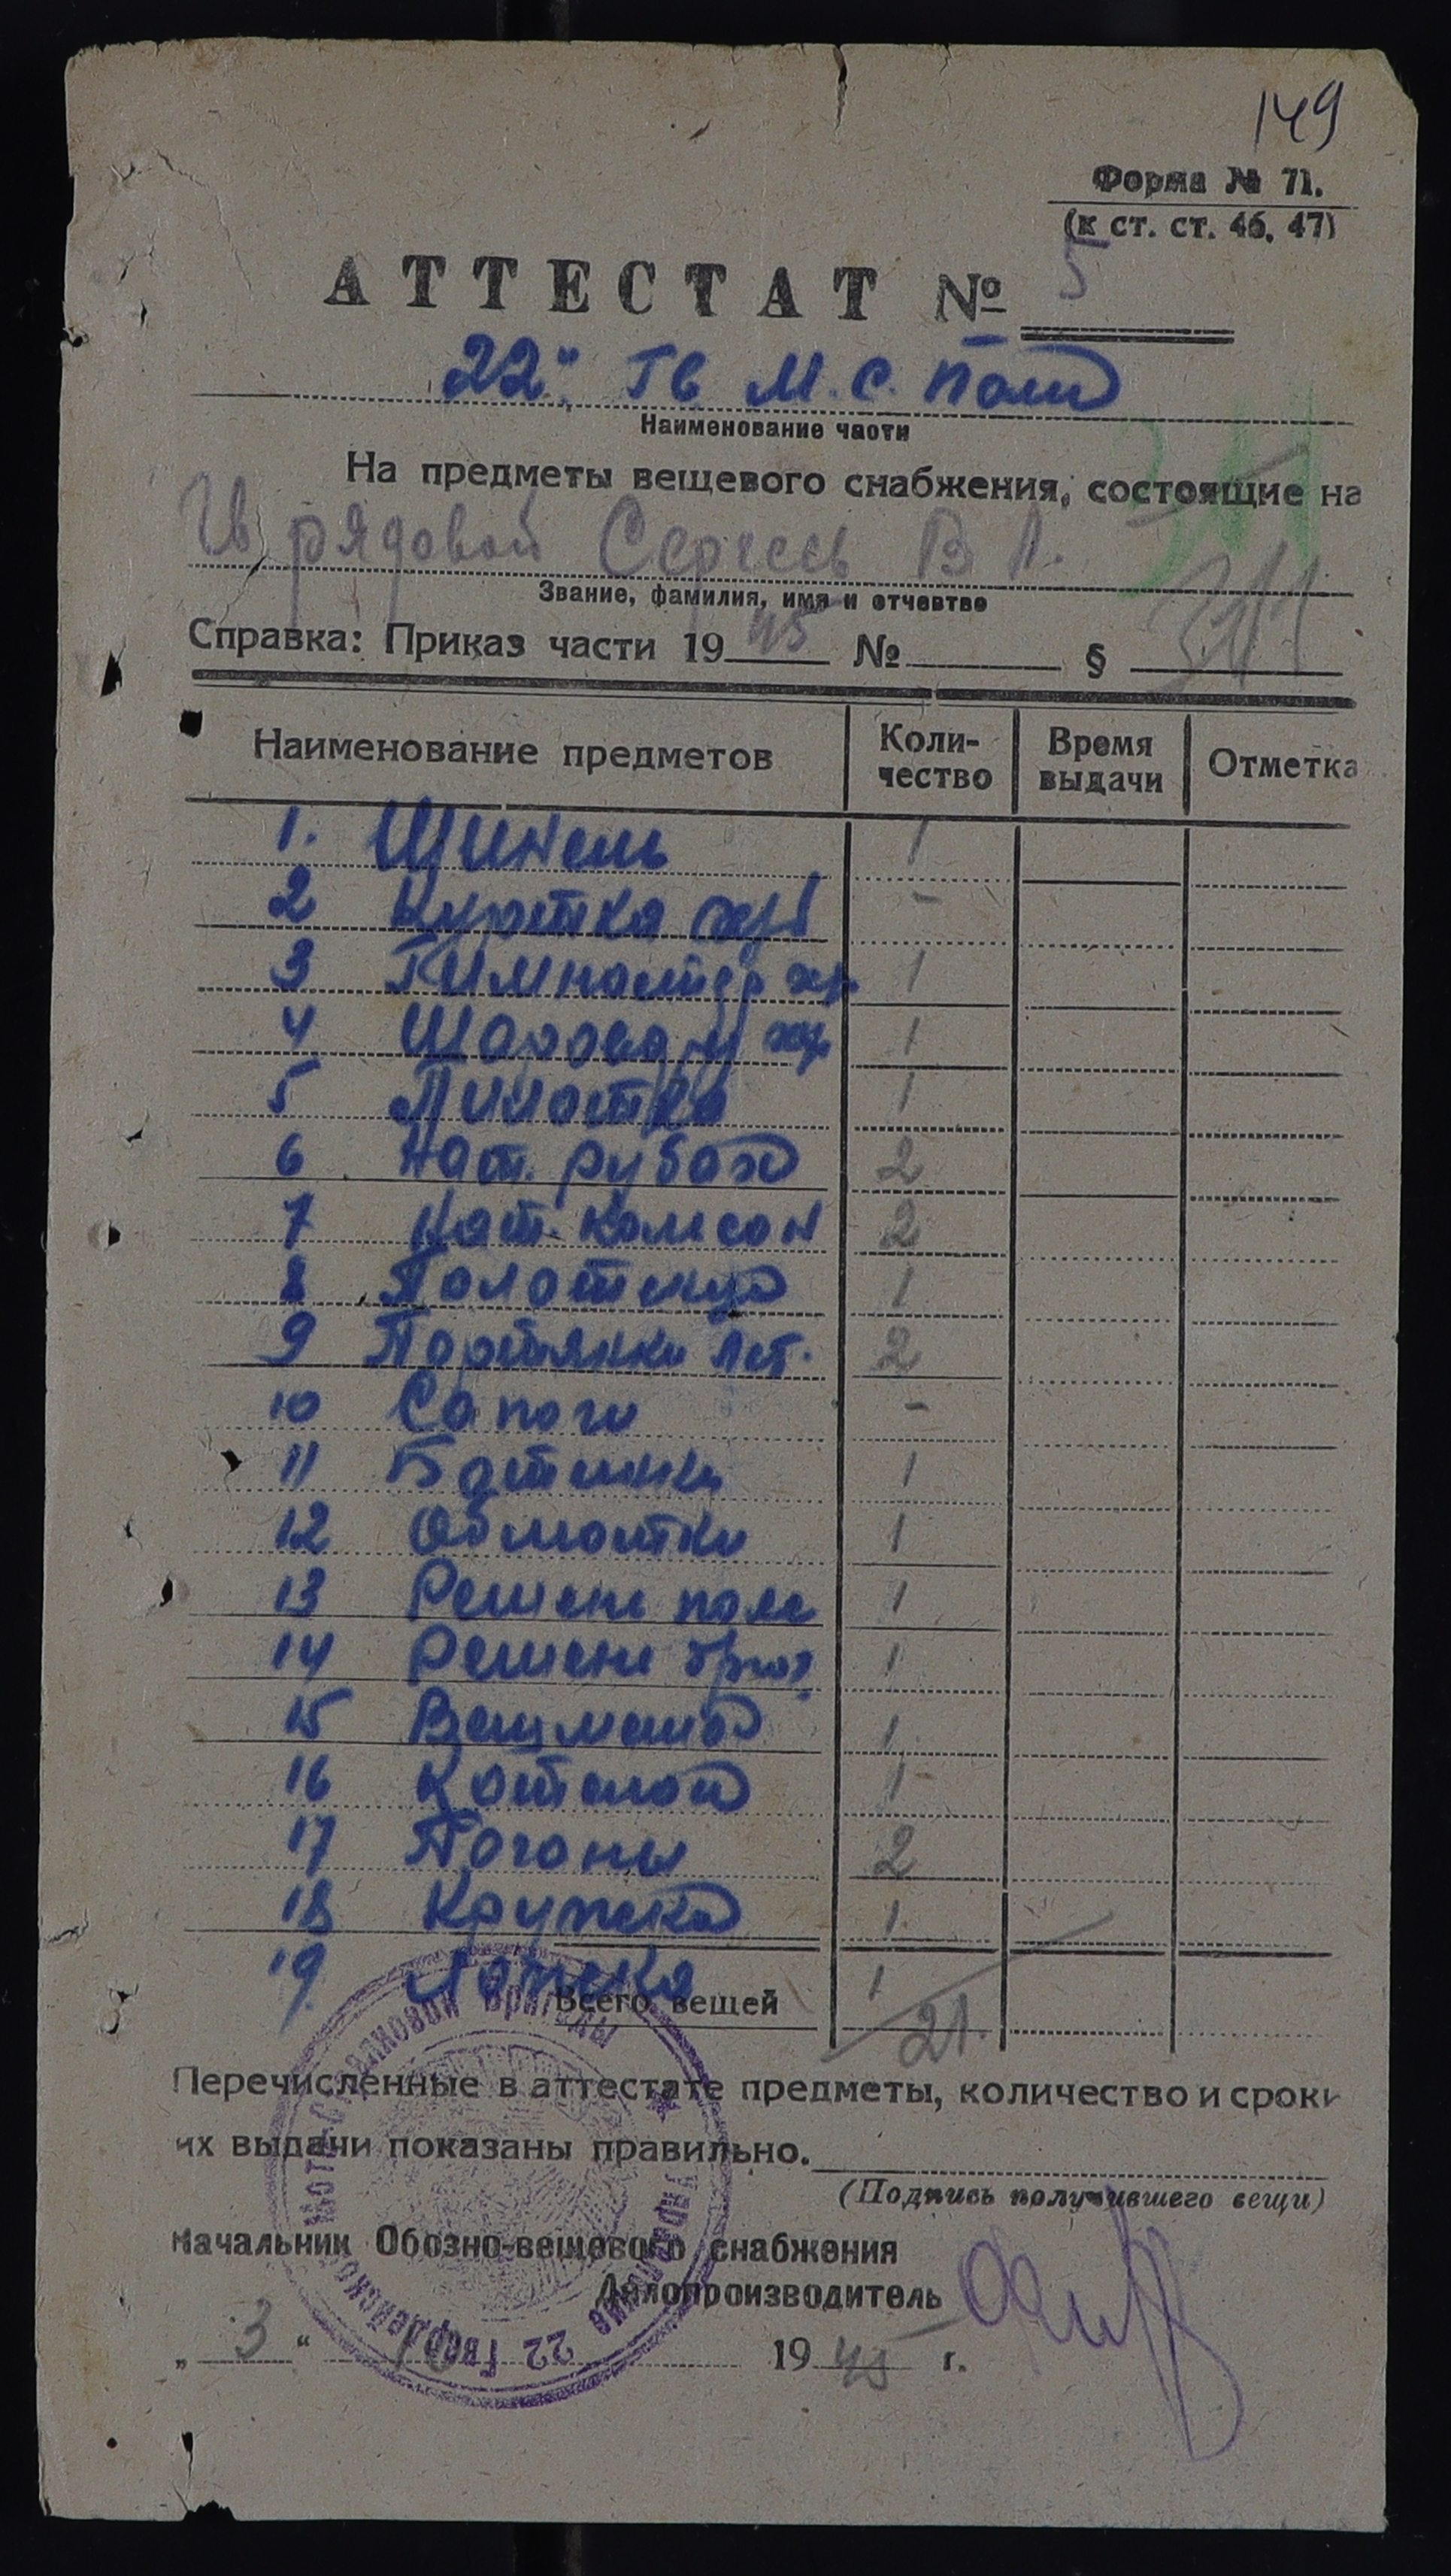 149
Форма № 71.
(к ст. ст. 46, 47)
АТТЕСТАТ № 5
22й Гв М.С. Полк
Наименование части
На предметы вещевого снабжения, состоящие на
Гв рядовой Сергеев В Л.
Звание, фамилия, имя и отчевтве
Справка: Приказ части 19 45 № §
Наименование предметов Коли-чество Время выдачи Отметка
1. Шинель 1
2 Куртка х/б -
3 Гимнастер х/б 1
4 Шаровары х/б 1
5 Пилотка 1
6 Нат. рубах 2
7 Нат. кальсон 2
8 Полотенце 1
9 Портянки лет. 2
10 Сапоги -
11 Ботинки 1
12 Обмотки 1
13 Ремень пояс 1
14 Ремень брюч. 1
15 Вещмешок 1
16 Котелок 1
17 Погоны 2
18 Кружка 1
19 Ложка 1
Всего вещей 21.
Перечисленные в аттестате предметы, количество и сроки
их выдачи показаны правильно.
(Подпись получившего вещи)
Начальник Обозно-вещевого снабжения
Делопроизводитель
„ 3 “ 10 19 45 г.
Управление 22 Гвардейской мотострелковой бригады